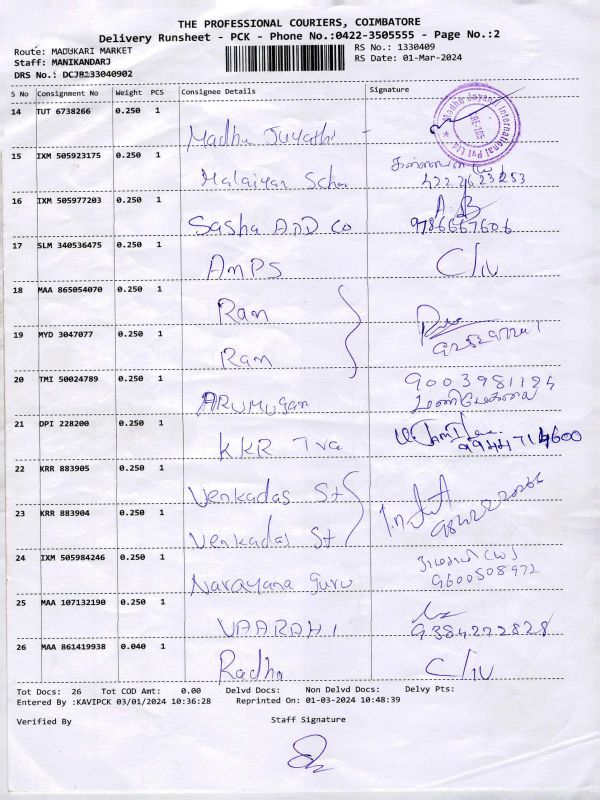 THE PROFESSIONAL COURIERS, COIMBATORE
Delivery Runsheet - PCK - Phone No.:0422-3505555 - Page No.:2
Route: MADUKARI MARKET
RS No.: 1330409
Staff: MANIKANDARJ
RS Date: 01-Mar-2024
DRS No.: DCJB233040902
S No Consignment No Weight PCS Consignee Details Signature
14 TUT 6738266 0.250 1 Madhu Jayathi
Madhu Jayanti International Pvt Ltd
15 IXM 505923175 0.250 1 Malaiyan
16 IXM 505977203 0.250 1 Sasha AND CO 9786667606
17 SLM 340536475 0.250 1 AMPS C/iv
18 MAA 865054070 0.250 1 Ram
19 MYD 3047077 0.250 1 Ram
20 TMI 50024789 0.250 1 ARUMUGAN 9003981124
மணிமேகலை
21 DPI 228200 0.250 1 KKR 9944714600
22 KRR 883905 0.250 1 Venkadas St
23 KRR 883904 0.250 1 Venkadas St
24 IXM 505984246 0.250 1 Narayana Guru 9600508972
25 MAA 107132190 0.250 1 VAARAHI 9384272828
26 MAA 861419938 0.040 1 Radha C/iv
Tot Docs: 26 Tot COD Amt: 0.00 Delvd Docs: Non Delvd Docs: Delvy Pts:
Entered By :KAVIPCK 03/01/2024 10:36:28 Reprinted On: 01-03-2024 10:48:39
Verified By Staff Signature